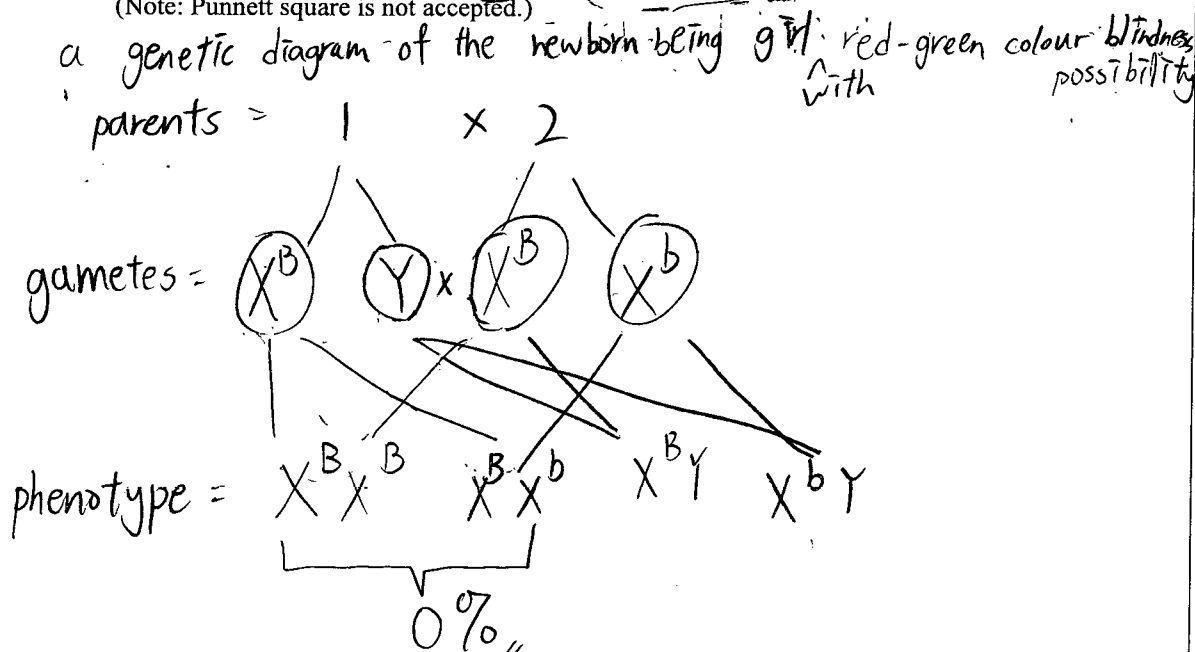 (Note: Punnett square is not accepted.)
a genetic diagram of the newborn being girl with red-green colour blindness possibility
parents = 1 x 2
gametes = X^B Y x X^B X^b
phenotype = X^B X^B X^B X^b X^B Y X^b Y
0%